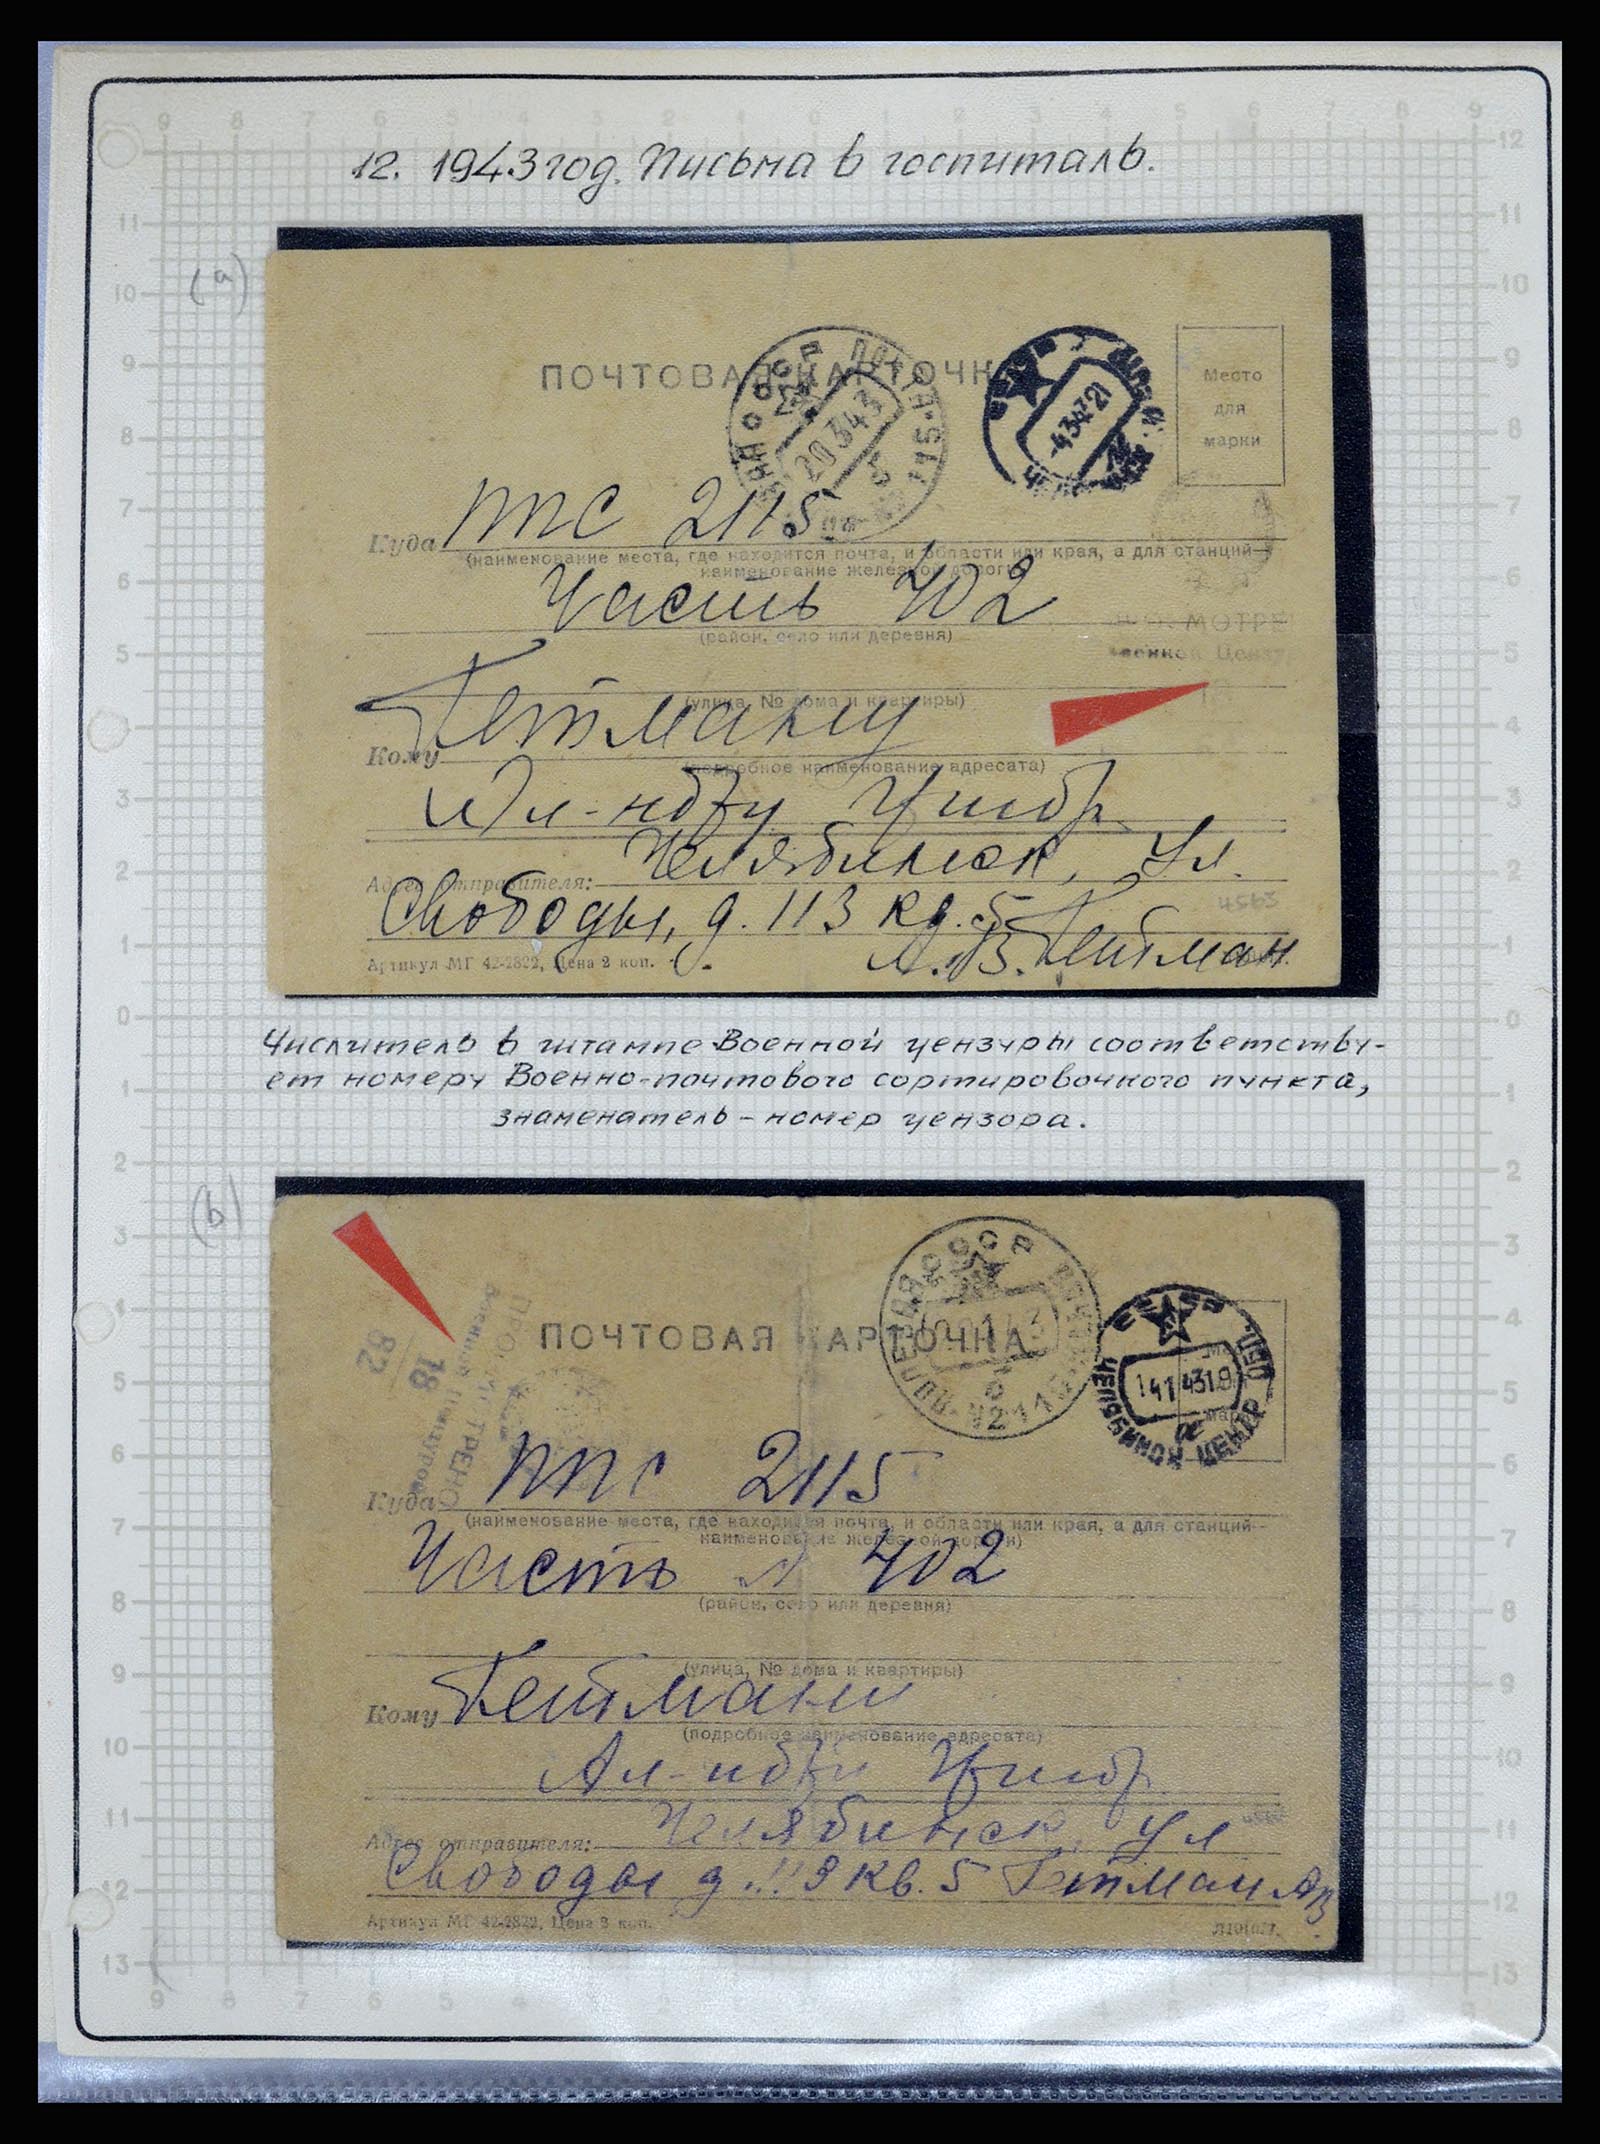 12. 1943 год. Письма в госпиталь.
(a)
ПОЧТОВАЯ КАРТОЧК
20 3 43
-4343 21
Место
для
марки
Куда ППС 2115
(наименование места, где находится почта, и области или края, а для станций—
наименование железной дороги)
Часть 402
(район, село или деревня)
МОТРЕ
Ценз
(улица, № дома и квартиры)
Кому Гетману
(подробное наименование адресата)
Челябинск, Ул.
Адрес отправителя:
Свободы, д. 113 кв. 5
4563
А. В. Гетман
Артикул МГ 42-2822, Цена 2 коп.
Числитель в штампе Военной цензуры соответству-
ет номеру Военно-почтового сортировочного пункта,
знаменатель – номер цензора.
(b)
ПОЧТОВАЯ КАРТОЧКА
ПОЛЕВАЯ
2115
ЧЕЛЯБИНСК
14 1 43 19
18
82
Военной Цензурой
Куда ППС 2115
(наименование места, где находится почта, и области или края, а для станций—
наименование железной дороги)
Часть № 402
(район, село или деревня)
(улица, № дома и квартиры)
Кому Гетману
(подробное наименование адресата)
Челябинск, ул
Адрес отправителя:
Свободы д. кв. 5 Гетман АВ
Артикул МГ 42-2822, Цена 2 коп.